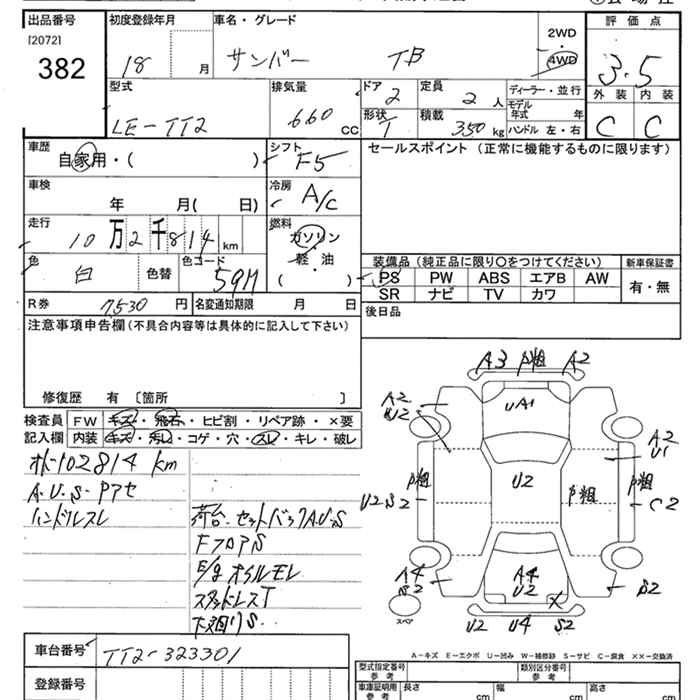 出品番号 初度登録年月 車名・グレード 評価点
[2072]
382
18 月 サンバー TB
2WD
・
4WD
3.5
型式 排気量 ドア 定員 ディーラー・並行 外装 内装
2 2人 モデル年式 年
LE-TT2 660 cc 形状 積載 C C
T 350kg ハンドル 左・右
車歴 シフト セールスポイント(正常に機能するものに限ります)
自家用・( ) F5
車検 冷房
年 月( 日) A/C
走行 燃料
10万2千814 km ガソリン
軽・油
( )
色 色替 色コード 装備品(純正品に限り○をつけてください) 新車保証書
白 59M PS PW ABS エアB AW 有・無
SR ナビ TV カワ
R券 7530円 名変通知期限 月 日 後日品
注意事項申告欄(不具合内容等は具体的に記入して下さい)
修復歴 有 〔箇所 〕
検査員 FW キズ・飛石・ヒビ割・リペア跡・×要
記入欄 内装 キズ・汚レ・コゲ・穴・スレ・キレ・破レ
102814 km
A.U.S.Pアセ
ハンドルスレ
荷台.セットバックA.U.S
FフロアS
E/gオイルモレ
スタッドレスT
下廻りS.
A3 P粗 A2
A2
W2
UA1
A2
U1
P粗
U2.S2
U2
P粗
P粗
C2
A4
S2
A4
U2
S2
スペア
U2 U4 S2
A-キズ E-エクボ U-凹み W-補修跡 S-サビ C-腐食 ××-交換済
車台番号 TT2-323301
登録番号
型式指定番号 参考 類別区分番号 参考
車庫証明用 参考 長さ cm 幅 cm 高さ cm